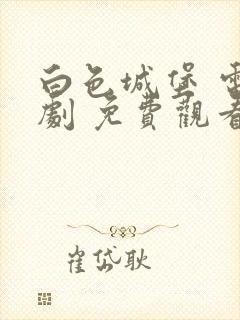 白色城堡 電
劇 免費觀看
崔岱耿